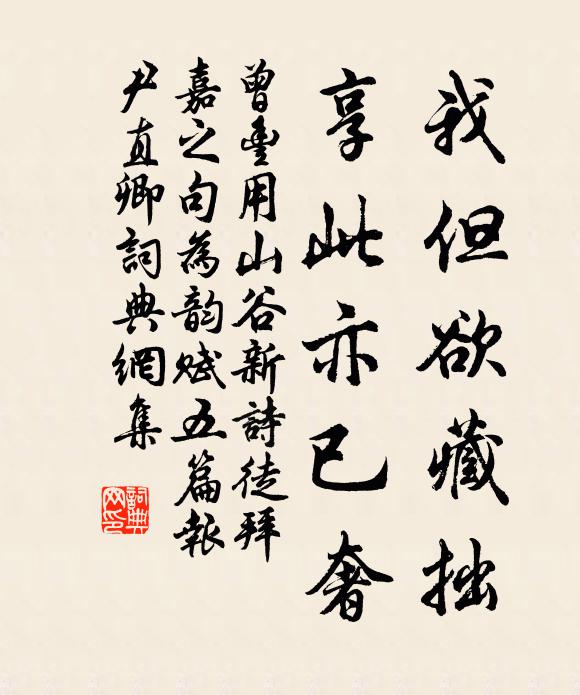 我但欲藏拙
享此亦已奢
曾豊用山谷新詩徒拜
嘉之句為韵赋五篇報
尹直卿詞典網集
詞典
网印